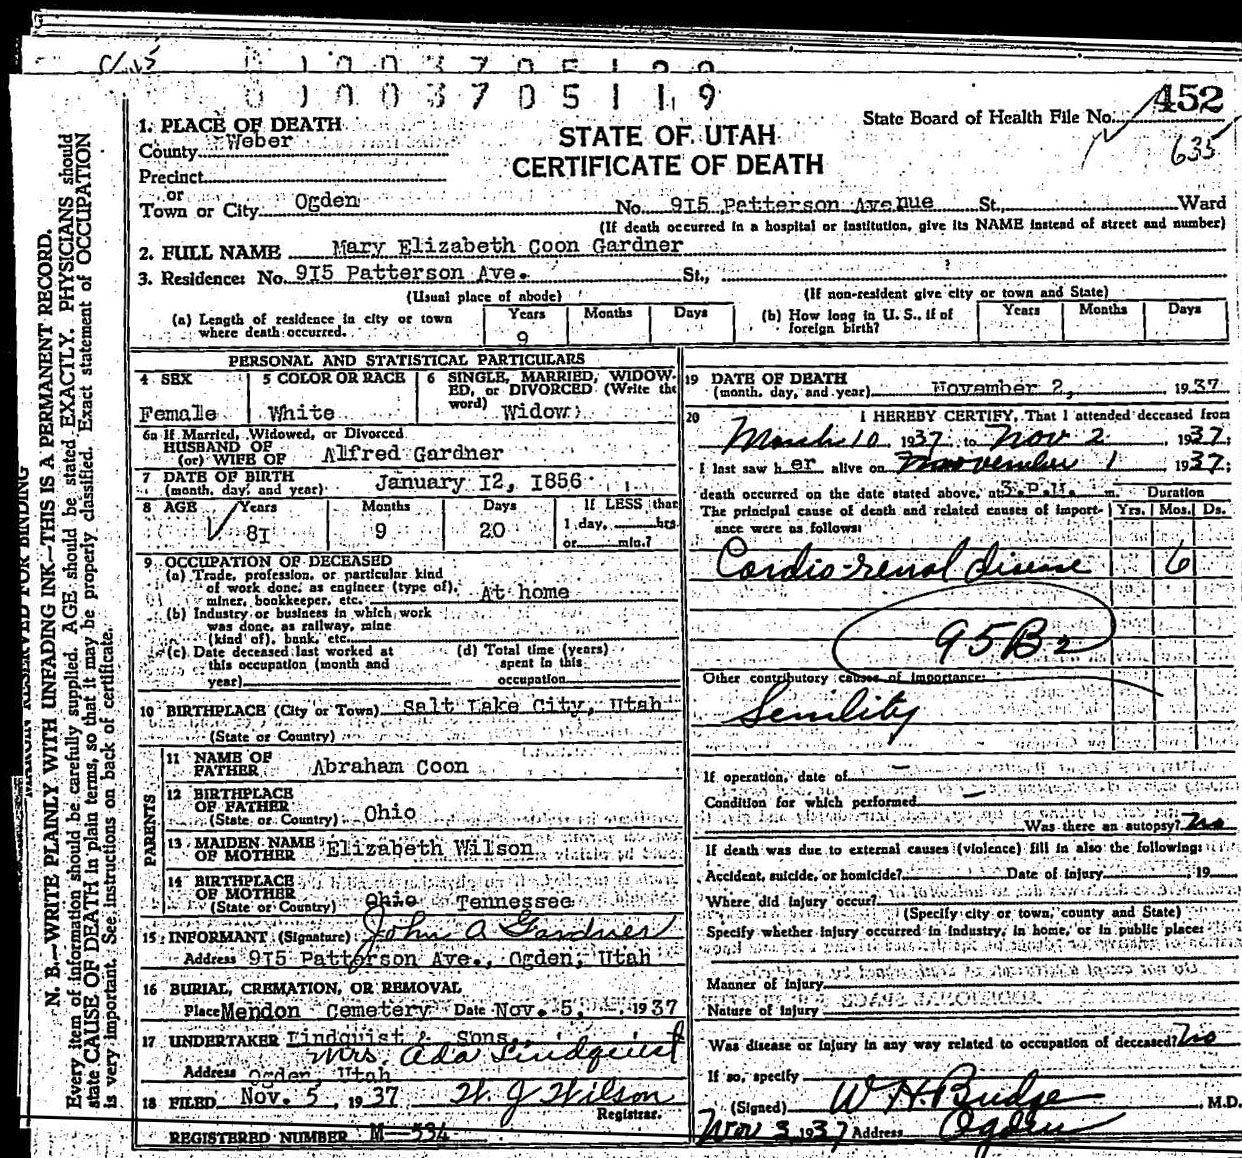 C/15
0 1 0 0 3 7 0 5 1 1 9
State Board of Health File No. 452
635
STATE OF UTAH
CERTIFICATE OF DEATH
1. PLACE OF DEATH
County Weber
Precinct
or
Town or City Ogden No. 915 Patterson Avenue St., Ward
(If death occurred in a hospital or institution, give its NAME instead of street and number)
2. FULL NAME Mary Elizabeth Coon Gardner
3. Residence: No. 915 Patterson Ave. St.,
(Usual place of abode) (If non-resident give city or town and State)
(a) Length of residence in city or town where death occurred. Years 9 Months Days
(b) How long in U. S., if of foreign birth? Years Months Days
PERSONAL AND STATISTICAL PARTICULARS
4 SEX Female
5 COLOR OR RACE White
6 SINGLE, MARRIED, WIDOWED, or DIVORCED (Write the word) Widow
6a If Married, Widowed, or Divorced
HUSBAND OF
(or) WIFE OF Alfred Gardner
7 DATE OF BIRTH
(month, day, and year) January 12, 1856
8 AGE Years 81 Months 9 Days 20 If LESS than
1 day, hrs.
or min.?
9 OCCUPATION OF DECEASED
(a) Trade, profession, or particular kind
of work done, as engineer (type of),
miner, bookkeeper, etc. At home
(b) Industry or business in which work
was done, as railway, mine
(kind of), bank, etc.
(c) Date deceased last worked at
this occupation (month and
year)
(d) Total time (years)
spent in this
occupation
10 BIRTHPLACE (City or Town) Salt Lake City, Utah
(State or Country)
PARENTS
11 NAME OF
FATHER Abraham Coon
12 BIRTHPLACE
OF FATHER
(State or Country) Ohio
13 MAIDEN NAME
OF MOTHER Elizabeth Wilson
14 BIRTHPLACE
OF MOTHER
(State or Country) Ohio Tennessee
15 INFORMANT (Signature) John A Gardner
Address 915 Patterson Ave., Ogden, Utah
16 BURIAL, CREMATION, OR REMOVAL
Place Mendon Cemetery Date Nov. 5, 1937
17 UNDERTAKER Lindquist & Sons,
Mrs. Ada Lindquist
Address Ogden, Utah
18 FILED Nov. 5, 1937 W. J Wilson
Registrar.
REGISTERED NUMBER M-534
19 DATE OF DEATH
(month, day, and year) November 2, 1937
20 I HEREBY CERTIFY, That I attended deceased from
March 10 1937, to Nov 2, 1937;
I last saw her alive on November 1, 1937;
death occurred on the date stated above, at 3.P.M. m. Duration
The principal cause of death and related causes of importance were as follows: Yrs. Mos. Ds.
Cardio-renal disease 6
95B2
Other contributory causes of importance:
Senility
If operation, date of –
Condition for which performed –
Was there an autopsy? No
If death was due to external causes (violence) fill in also the following:
Accident, suicide, or homicide? Date of injury 19
Where did injury occur?
(Specify city or town, county and State)
Specify whether injury occurred in industry, in home, or in public place:
Manner of injury
Nature of injury
Was disease or injury in any way related to occupation of deceased? No
If so, specify
(Signed) W H Budge, M.D.
Nov 3 1937 Address Ogden
MARGIN RESERVED FOR BINDING
N. B.—WRITE PLAINLY WITH UNFADING INK—THIS IS A PERMANENT RECORD.
Every item of information should be carefully supplied. AGE should be stated EXACTLY. PHYSICIANS should
state CAUSE OF DEATH in plain terms, so that it may be properly classified. Exact statement of OCCUPATION
is very important. See instructions on back of certificate.